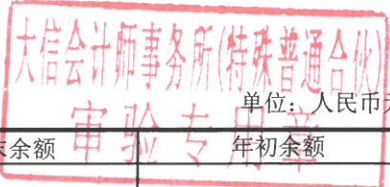 大信会计师事务所(特殊普通合伙)
审验专用章
单位：人民币
末余额 年初余额